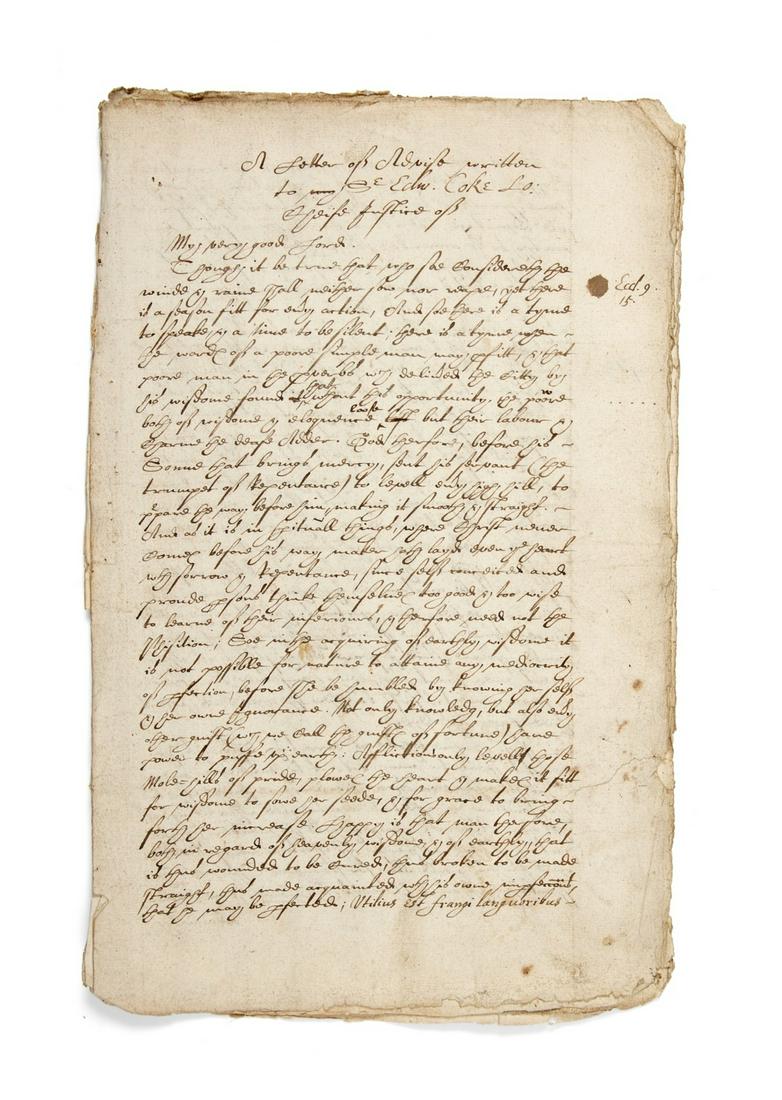 A Letter of Advise written
to my Sr Edw. Coke Lo:
Cheife Justice of
My very good Lord.
Though it be true that who soe Considereth the
winde & raine shall neither sow nor reape, yet there
is a season fitt for every action, And soe there is a tyme
to speake, & a time to be silent: there is a tyme when
the words of a poore simple man may pfitt, & that
poore man in the Proverbs wch deliuered the Citty by
his wisdome found that without this opportunity, the power
both of wisdome & eloquence loose but their labour &
Charme the deafe Adder. God therfore, before his
Sonne that brings mercy, sent his servant (the
trumpet of Repentance) to levell every high hill, to
ppare the way before him, making it smooth & straight.
And as it is in spirituall things, where Christ never
Comes before his way maker hath layd even ye heart
wth sorrow & Repentance, since self conceited and
proude psons thinke themselues too good & too wise
to learne of their inferiours, & therfore need not the
Phisition; Soe in the acquiring of earthly wisdome it
is not possible for nature to attaine any mediocrity
of pfection, before she be humbled by knowing her selfe
& her owne Ignorance. Not only knowledg, but also every
other guift (wch we Call the guifts of fortune) haue
power to puffe up earth: Afflictions only levell those
Mole-hills of pride, plowes the heart & makes it fitt
for wisdome to sowe her seede, & for grace to bring
forth her increase. Happy is that man therfore,
both in regard of heavenly wisdome & of earthly, that
is thus wounded to be Cured, thus broken to be made
straight, thus made acquainted wth his owne impfecconst,
that he may be pfected; Vtilius est frangi languoribus
Eccl. 9.
15.